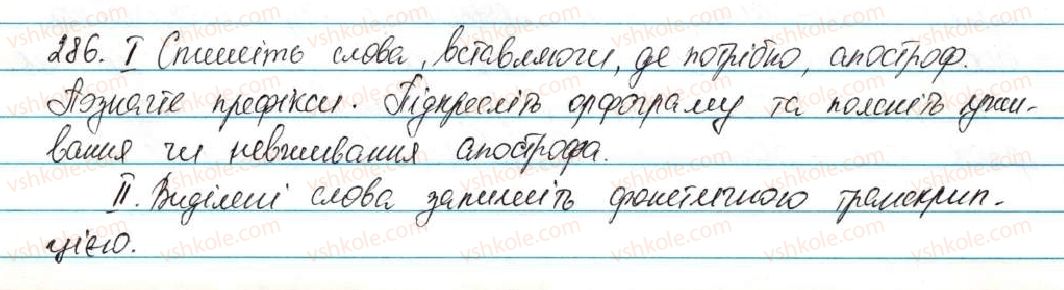 286. I Спишіть слова, вставляючи, де потрібно, апостроф.
Позначте префікси. Підкресліть орфограму та поясніть ужи-
вання чи невживання апострофа.
II. Виділені слова запишіть фонетичною транскрип-
цією.